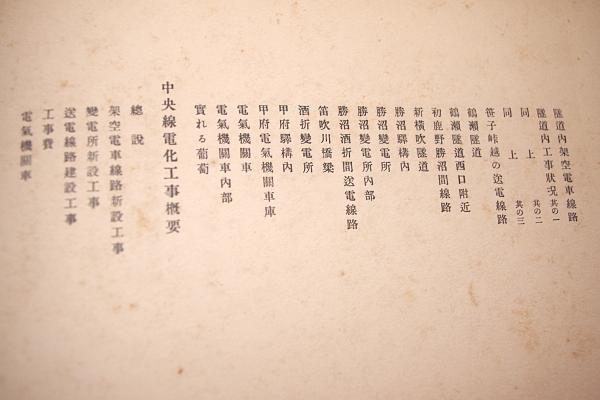 隧道內架空電車線路 其の一
隧道內工事狀況 其の二
同上 其の三
同上
笹子峠越の送電線路
鶴瀨隧道
鶴瀨隧道西口附近
初鹿野勝沼間線路
新橫吹隧道
勝沼驛構內
勝沼變電所
勝沼變電所內部
勝沼酒折間送電線路
笛吹川橋梁
酒折變電所
甲府驛構內
甲府電氣機關車庫
電氣機關車
電氣機關車內部
實れる葡萄
中央線電化工事槪要
總說
架空電車線路新設工事
變電所新設工事
送電線路建設工事
工事費
電氣機關車